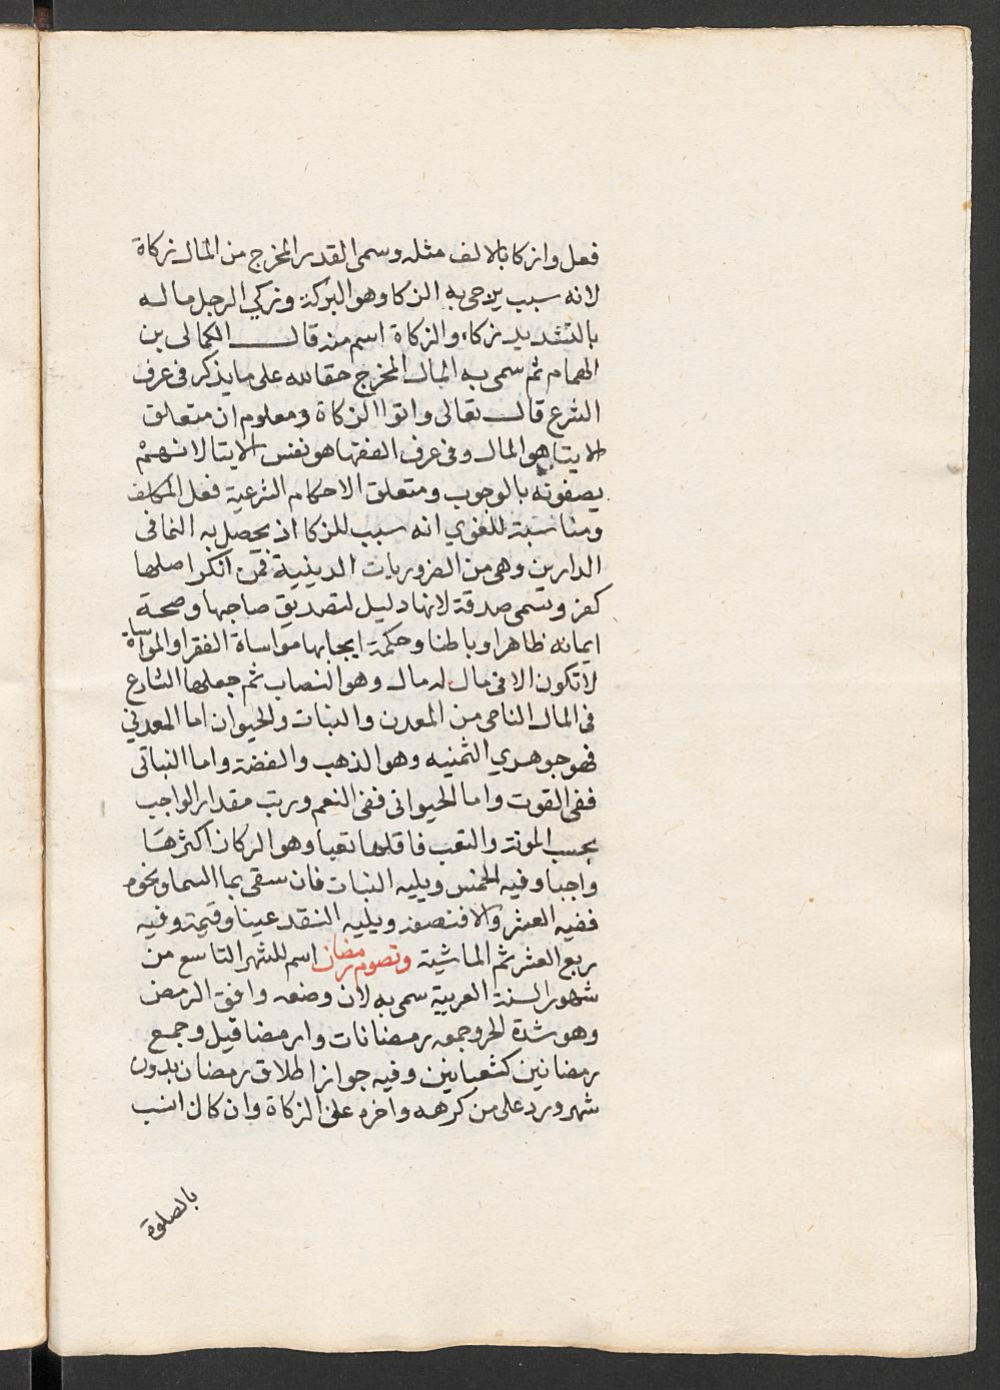 فعل وازكا بالالف مثله وسمى القدر المخرج من المال زكاة
لانه سبب يرجى به الزكا وهو البركة وزكي الرجل ماله
بالتشديد زكاء والزكاة اسم منه قال الكمالى بن
الهمام ثم سمى به المال المخرج حقا لله على ما يذكر فى عرف
الشرع قال تعالى واتوا الزكاة ومعلوم ان متعلق
الايتا هو المال وفى عرف الفقها هو نفس الايتا لانهم
يصفونه بالوجوب ومتعلق الاحكام الشرعية فعل المكلف
ومناسبته للغوي انه سبب للزكا اذ يحصل به النما فى
الدارين وهى من الضروريات الدينية فمن انكر اصلها
كفر وتسمى صدقة لانها دليل لتصديق صاحبها وصحة
ايمانه ظاهرا وباطنا وحكمة ايجابها مواساة الفقرا والمواساة
لا تكون الا فى مال له مال وهو النصاب ثم جعلها الشارع
فى المال النامى من المعدن والنبات والحيوان اما المعدني
فهو جوهري الثمنيه وهو الذهب والفضة واما النباتى
ففى القوت واما الحيوانى ففى النعم ورتب مقدار الواجب
بحسب المونة والتعب فاقلها تعبا وهو الركاز اكثرها
واجبا وفيه الخمس ويليه النبات فان سقى بما السما ونحوه
ففيه العشر والا فنصفه ويليه النقد عينا وقيمة وفيه
ربع العشر ثم الماشية وتصوم رمضان اسم للشهر التاسع من
شهور السنة العربية سمى به لان وضعه وافق الرمض
وهو شدة الحر وجمعه رمضانات وارمضا قيل وجمع
رمضانين كشعبانين وفيه جواز اطلاق رمضان بدون
شهر ورد على من كرهه واخره على الزكاة وان كان انسب
بالصلوة